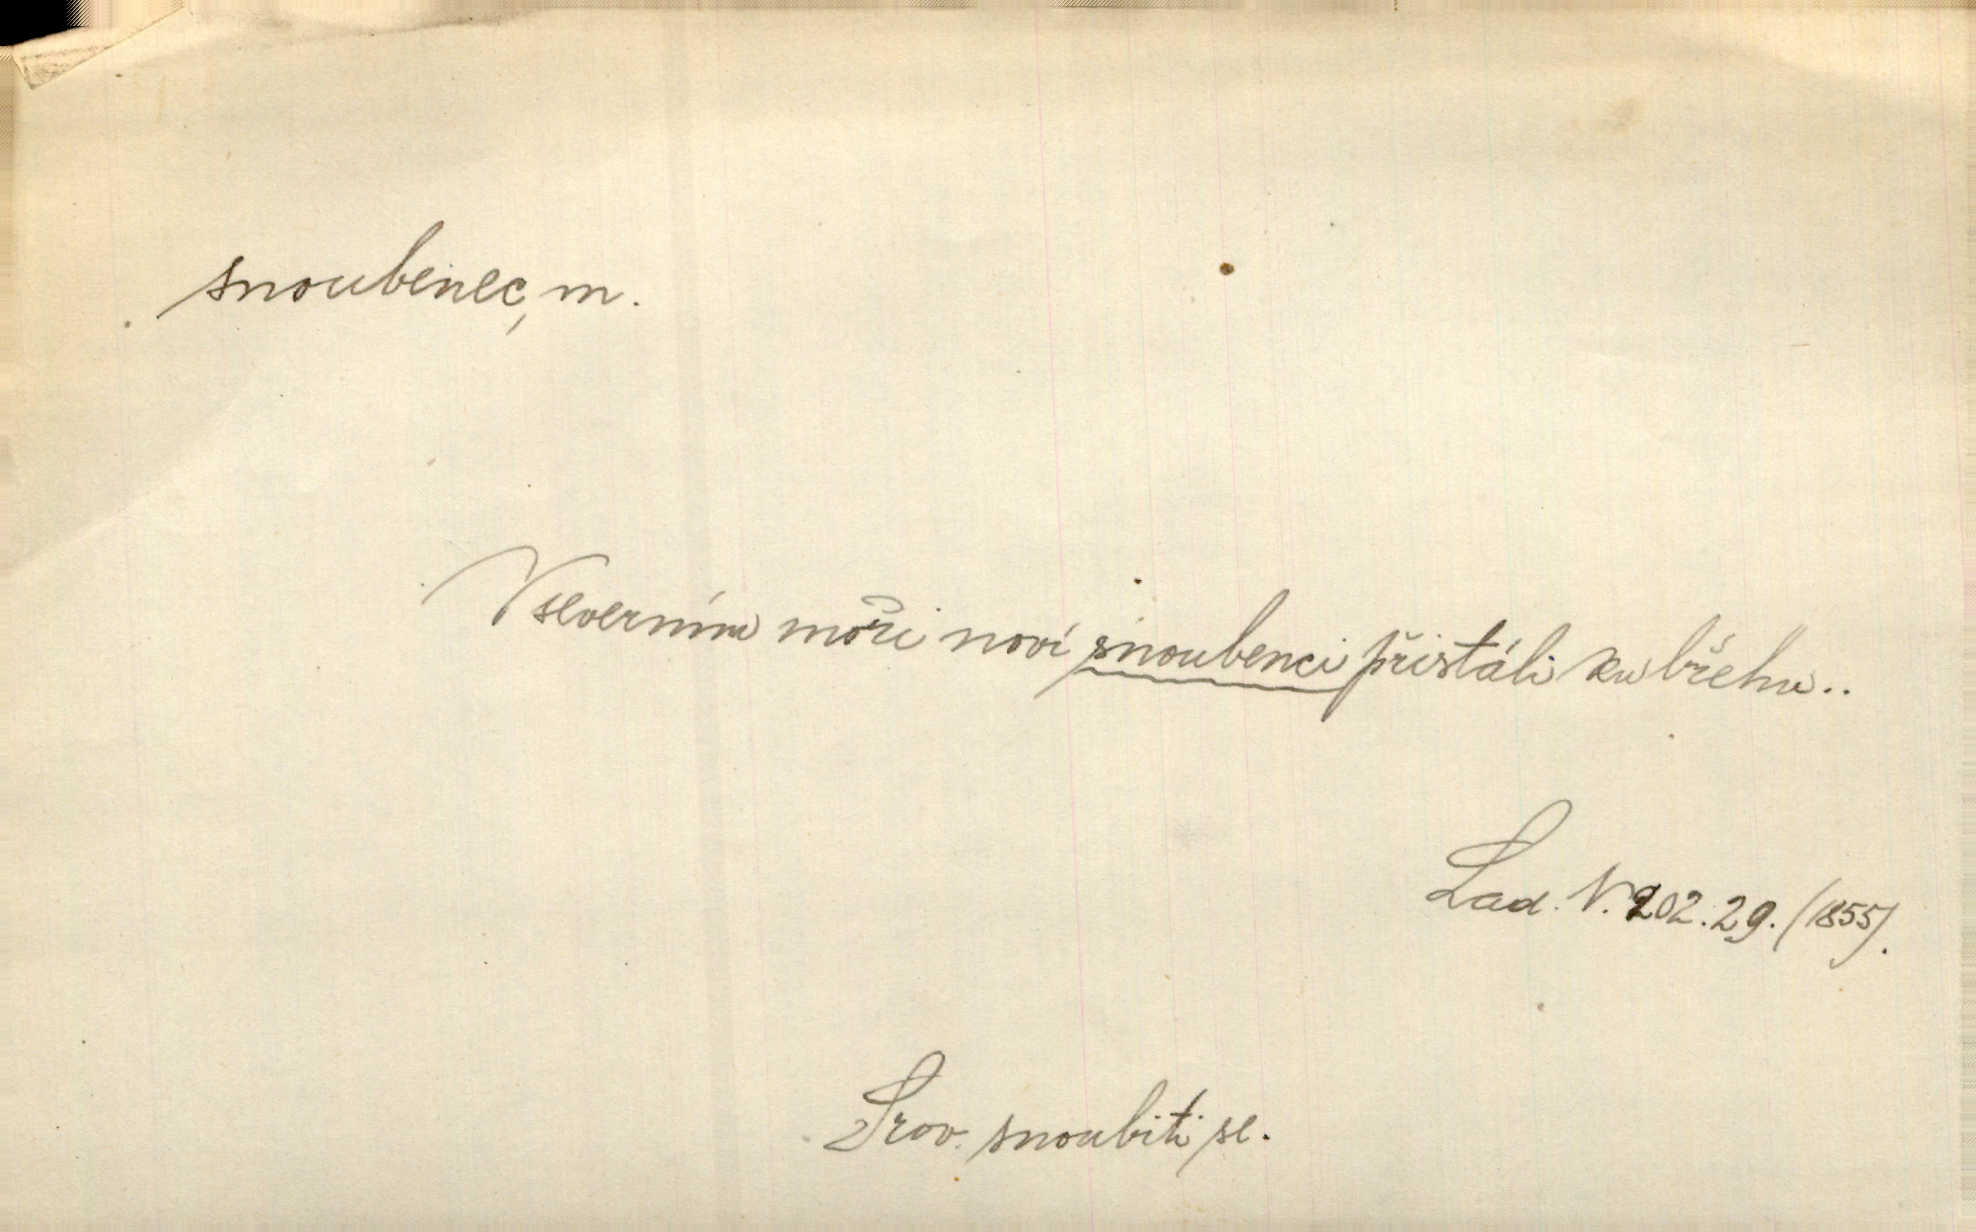 snoubenec, m.
V severním moři noví snoubenci přistáli ku břehu..
Lad. N. 202.29. (1855).
Srov. snoubiti se.